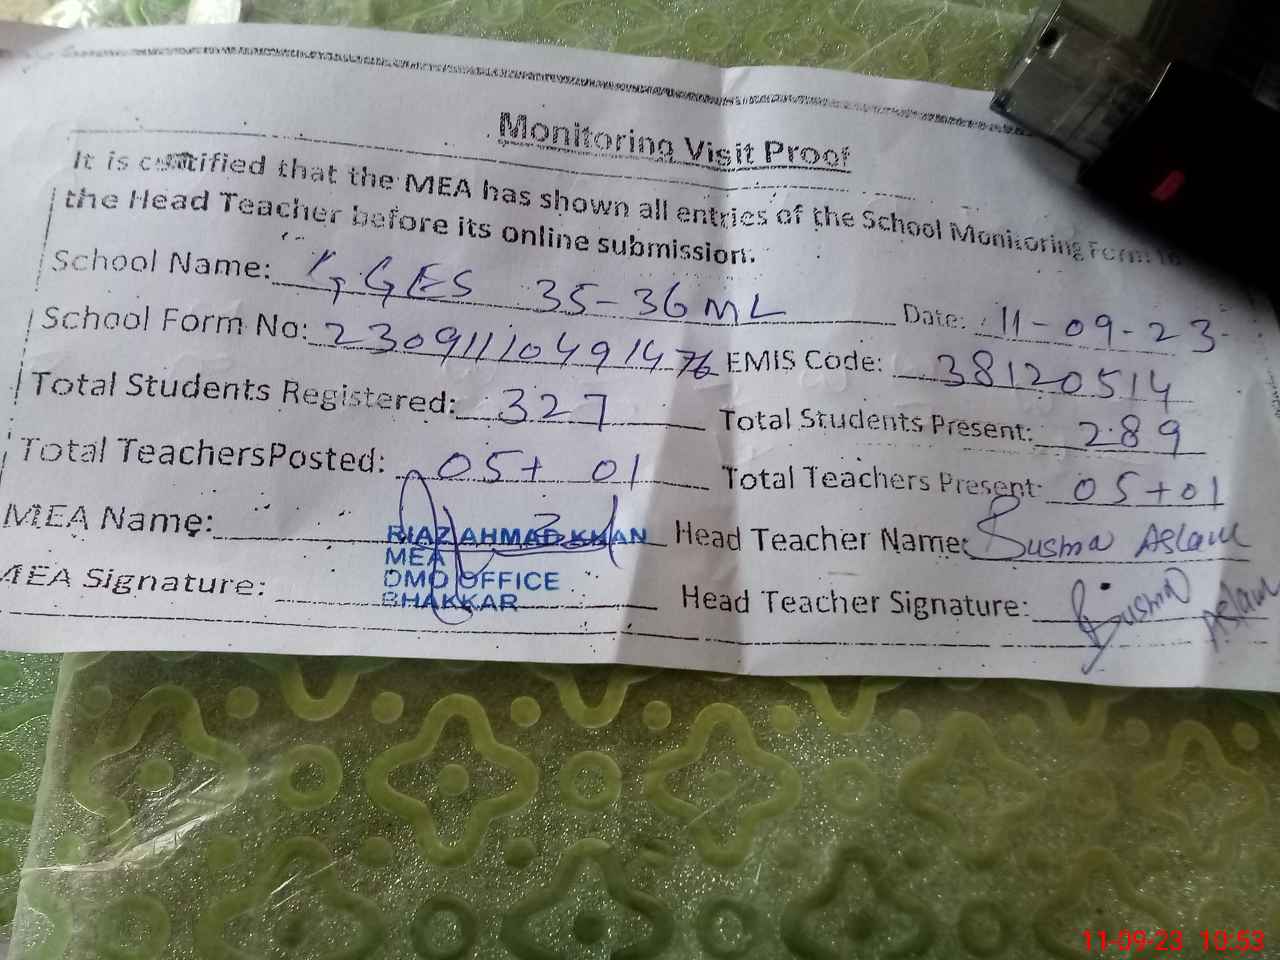 Monitoring Visit Proof
It is certified that the MEA has shown all entries of the School Monitoring Form to
the Head Teacher before its online submission.
School Name: GGES 35-36 ML Date: 11-09-23
School Form No: 23091110491476 EMIS Code: 38120514
Total Students Registered: 327 Total Students Present: 289
Total TeachersPosted: 05+ 01 Total Teachers Present: 05+01
MEA Name: RIAZ AHMAD KHAN Head Teacher Name: Busma Aslam
MEA
DMO OFFICE
MEA Signature: BHAKKAR Head Teacher Signature: Busma Aslam
11-09-23 10:53